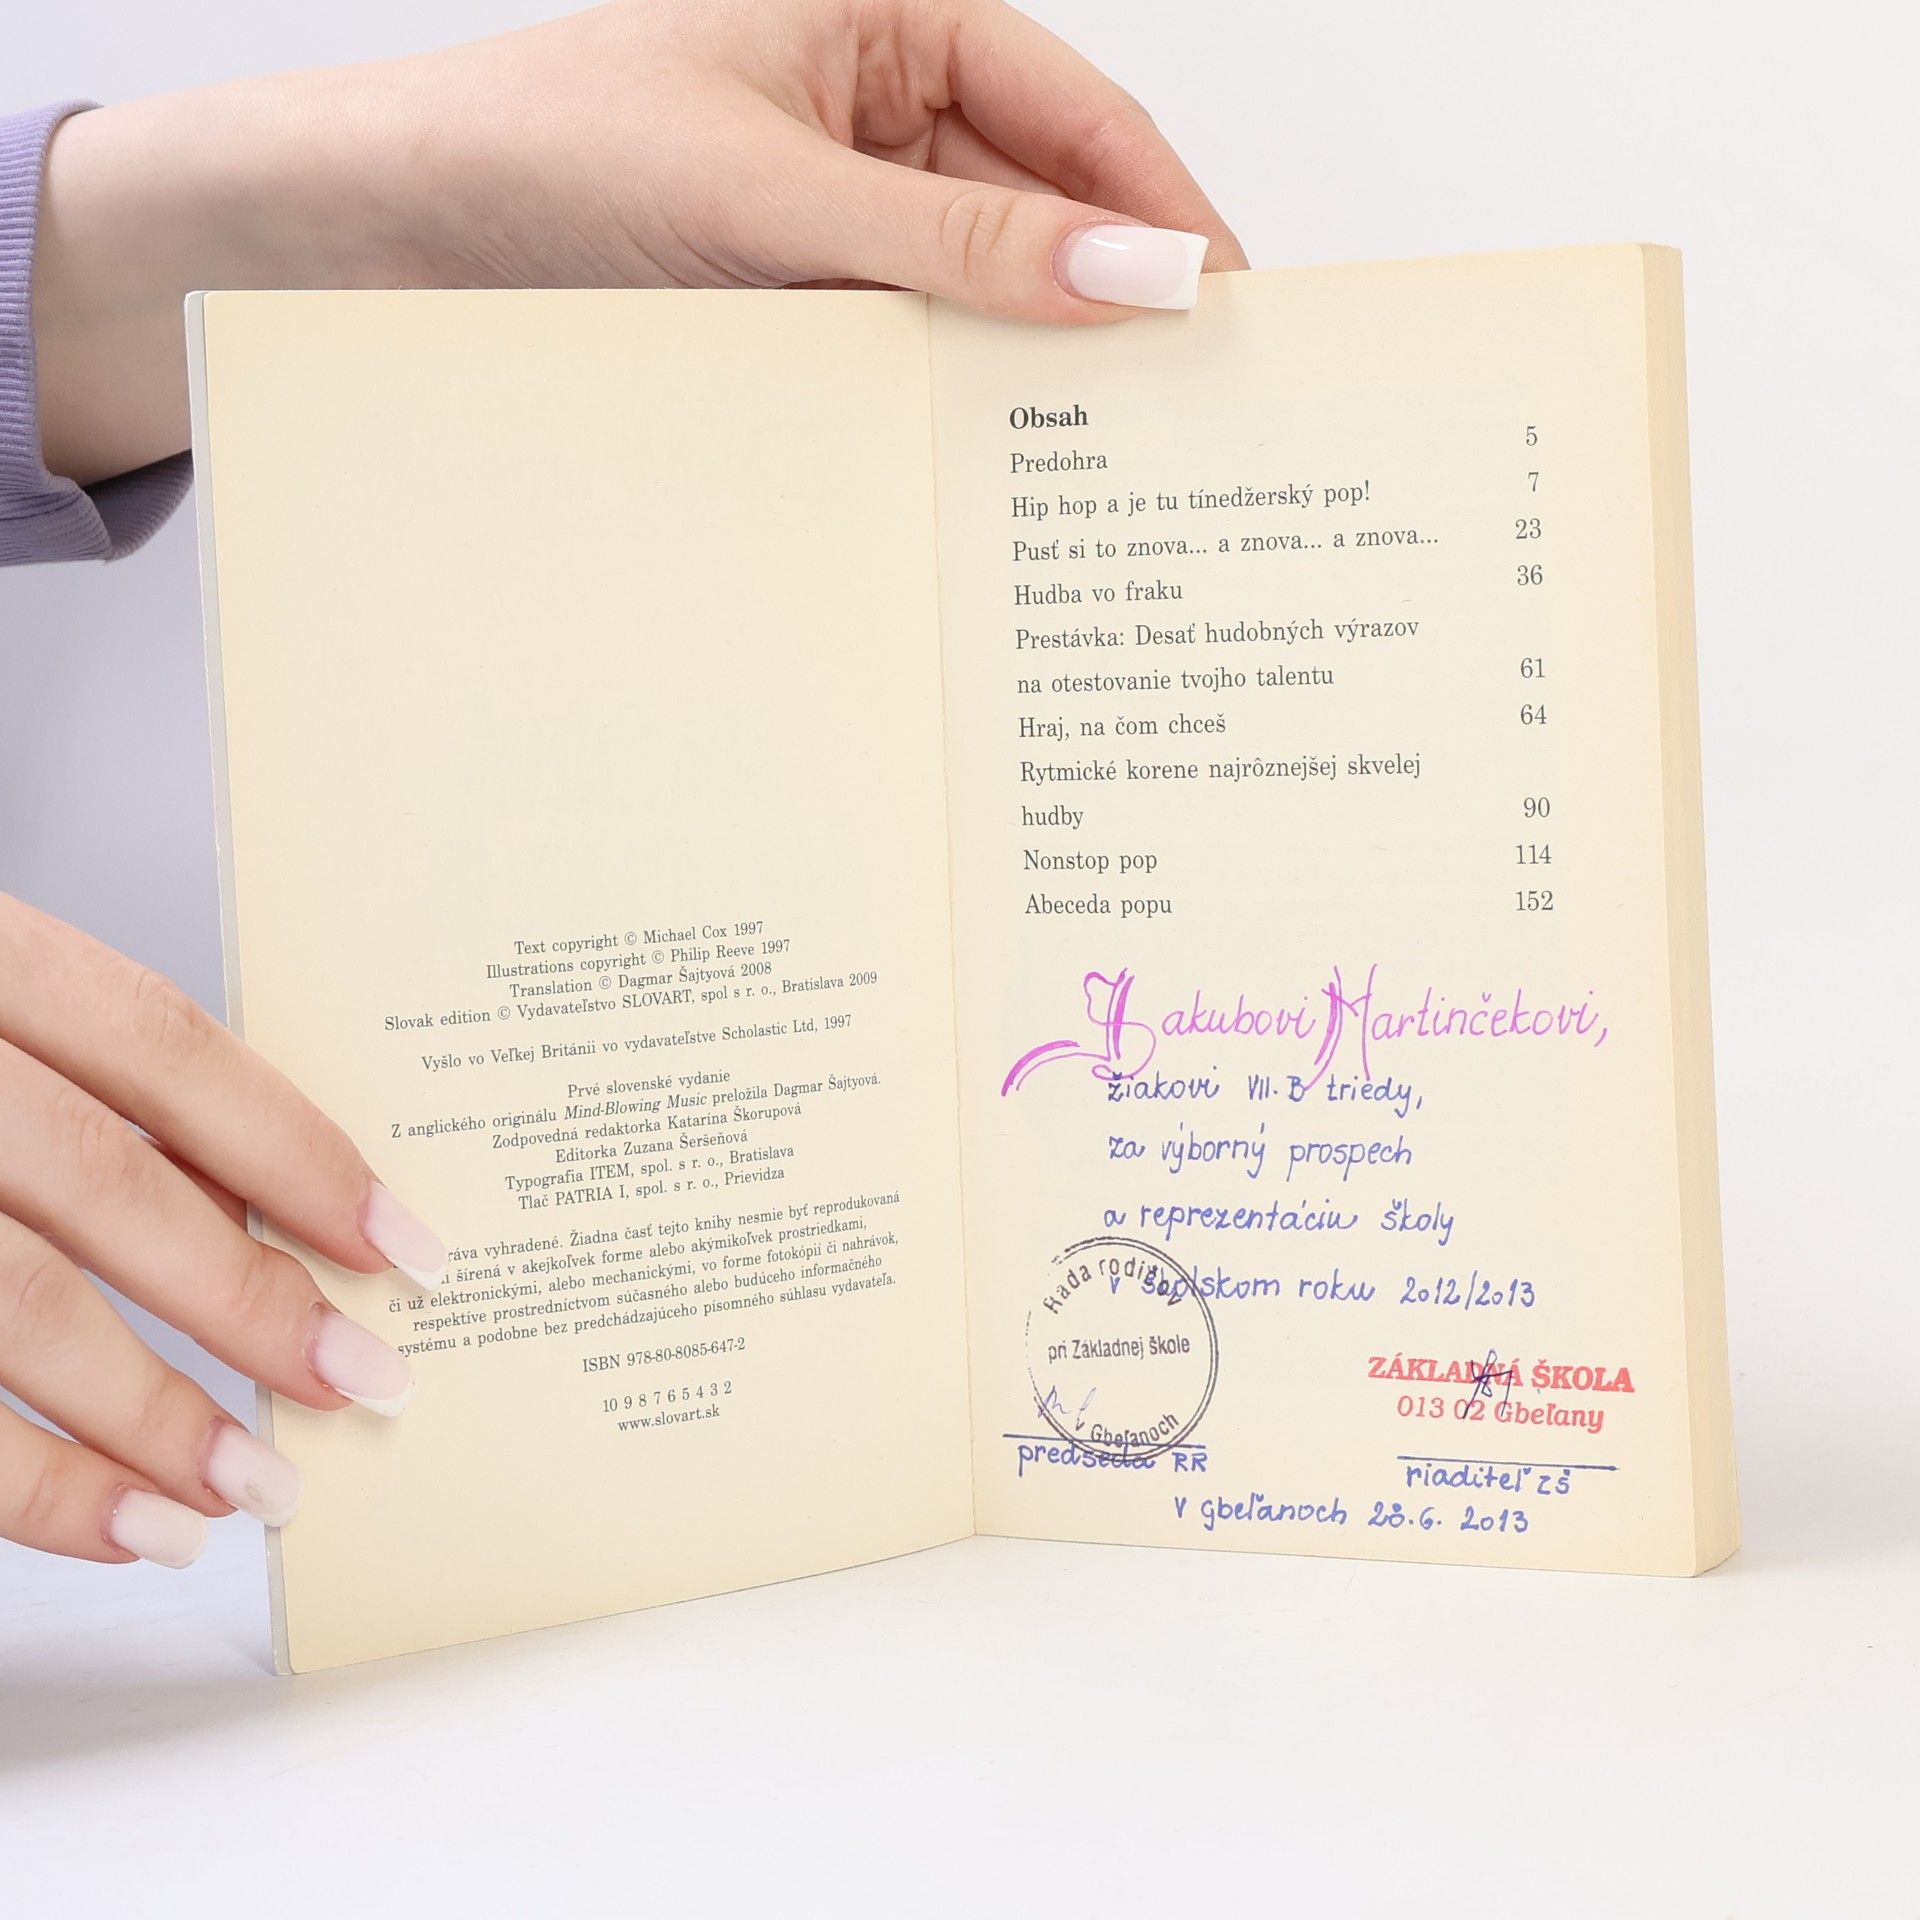 Text copyright © Michael Cox 1997
Illustrations copyright © Philip Reeve 1997
Translation © Dagmar Šajtyová 2008
Slovak edition © Vydavateľstvo SLOVART, spol s r. o., Bratislava 2009
Vyšlo vo Veľkej Británii vo vydavateľstve Scholastic Ltd, 1997
Prvé slovenské vydanie
Z anglického originálu Mind-Blowing Music preložila Dagmar Šajtyová.
Zodpovedná redaktorka Katarína Škorupová
Editorka Zuzana Šeršeňová
Typografia ITEM, spol. s r. o., Bratislava
Tlač PATRIA I, spol. s r. o., Prievidza
vyhradené. Žiadna časť tejto knihy nesmie byť reprodukovaná
šírená v akejkoľvek forme alebo akýmikoľvek prostriedkami,
či už elektronickými, alebo mechanickými, vo forme fotokópií či nahrávok,
respektíve prostredníctvom súčasného alebo budúceho informačného
systému a podobne bez predchádzajúceho písomného súhlasu vydavateľa.
ISBN 978-80-8085-647-2
10 9 8 7 6 5 4 3 2
www.slovart.sk
Obsah
Predohra 5
Hip hop a je tu tínedžerský pop! 7
Pusť si to znova... a znova... a znova... 23
Hudba vo fraku 36
Prestávka: Desať hudobných výrazov
na otestovanie tvojho talentu 61
Hraj, na čom chceš 64
Rytmické korene najrôznejšej skvelej
hudby 90
Nonstop pop 114
Abeceda popu 152
Jakubovi Martinčekovi,
žiakovi VII. B triedy,
za výborný prospech
a reprezentáciu školy
v školskom roku 2012/2013
Rada rodičov
pri Základnej škole
v Gbeľanoch
predseda RR
ZÁKLADNÁ ŠKOLA
013 02 Gbeľany
riaditeľ ZŠ
V Gbeľanoch 28.6. 2013